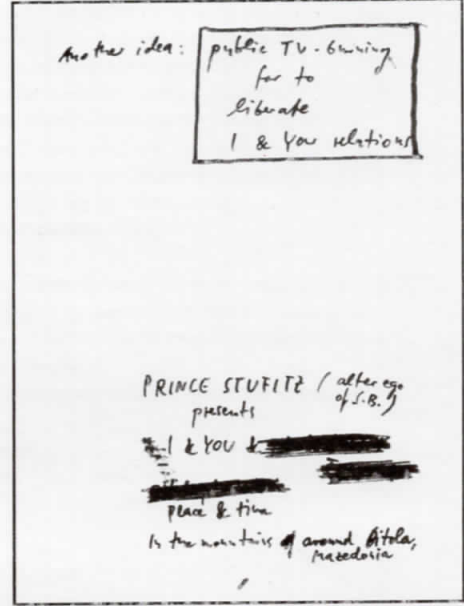 Another idea:
public TV-burning
for to
liberate
I & You relations
PRINCE STUFITZ (alter ego
of S.B.)
presents
I & YOU &
place & time
In the mountains around Bitola,
Mazedonia